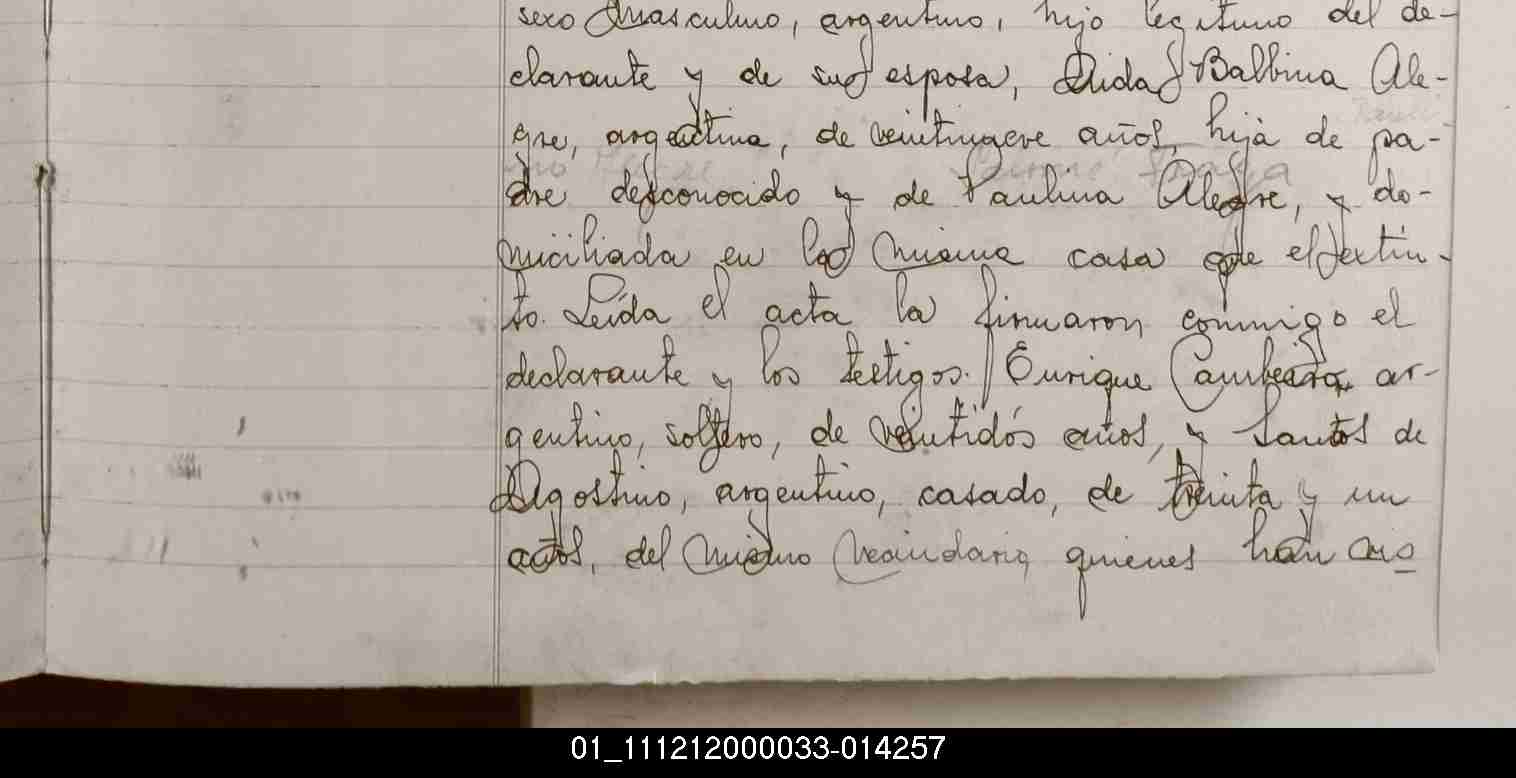 sexo masculino, argentino, hijo legitimo del de-
clarante y de su esposa, Balbina Ale-
gre, argentina, de veintinueve años, hija de pa-
dre desconocido y de Paulina Alegre, y do-
miciliada en la misma casa que el extin-
to. Leída el acta la firmaron conmigo el
declarante y los testigos. Enrique ar-
gentino, soltero, de veintidós años, y Santos de
Agostino, argentino, casado, de treinta y un
años, del mismo vecindario, quienes han vis
01_111212000033-014257